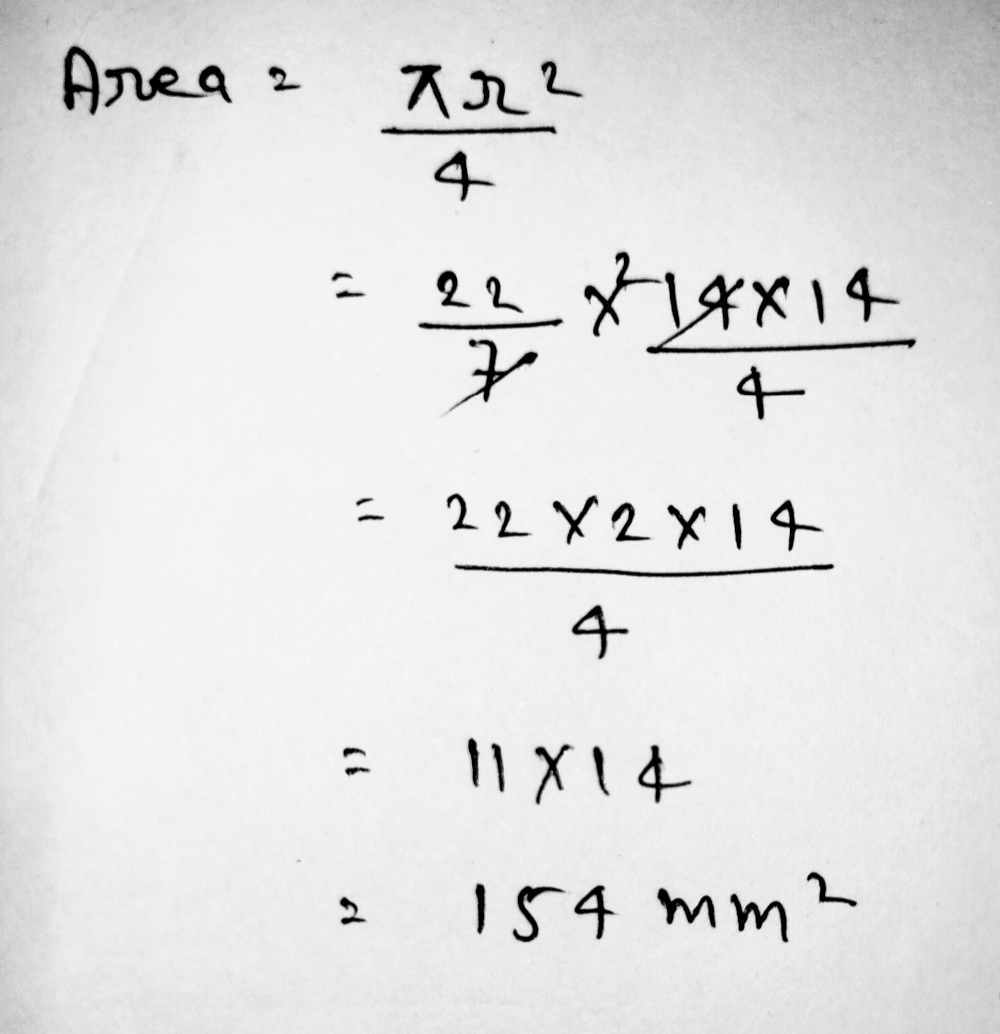 Area = πr²
4
= 22 × ²14×14
7 4
= 22 × 2 × 14
4
= 11 × 14
= 154 mm²